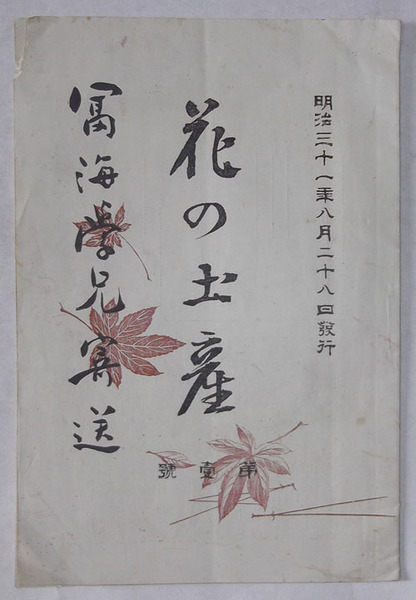 明治三十一年八月二十八日發行
花の土産
第壹號
冨海學兄寄送